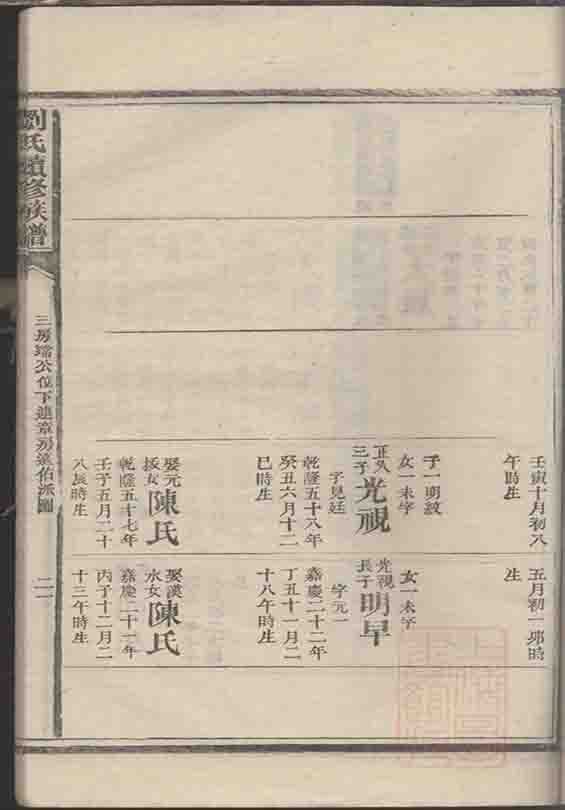 壬寅十月初八
午時生
子一明紋
女一未字
正久
三子
光視
字見廷
乾隆五十八年
癸丑六月十二
巳時生
娶元
援女
陳氏
乾隆五十七年
壬子五月二十
八辰時生
五月初一夘時
生
女一未字
光視
長子
明早
字元一
嘉慶二十二年
丁丑十一月二
十八午時生
娶漢
水女
陳氏
嘉慶二十一年
丙子十二月二
十三午時生
劉氏續修族譜
三房 公位下達章房 佑派圖
二一